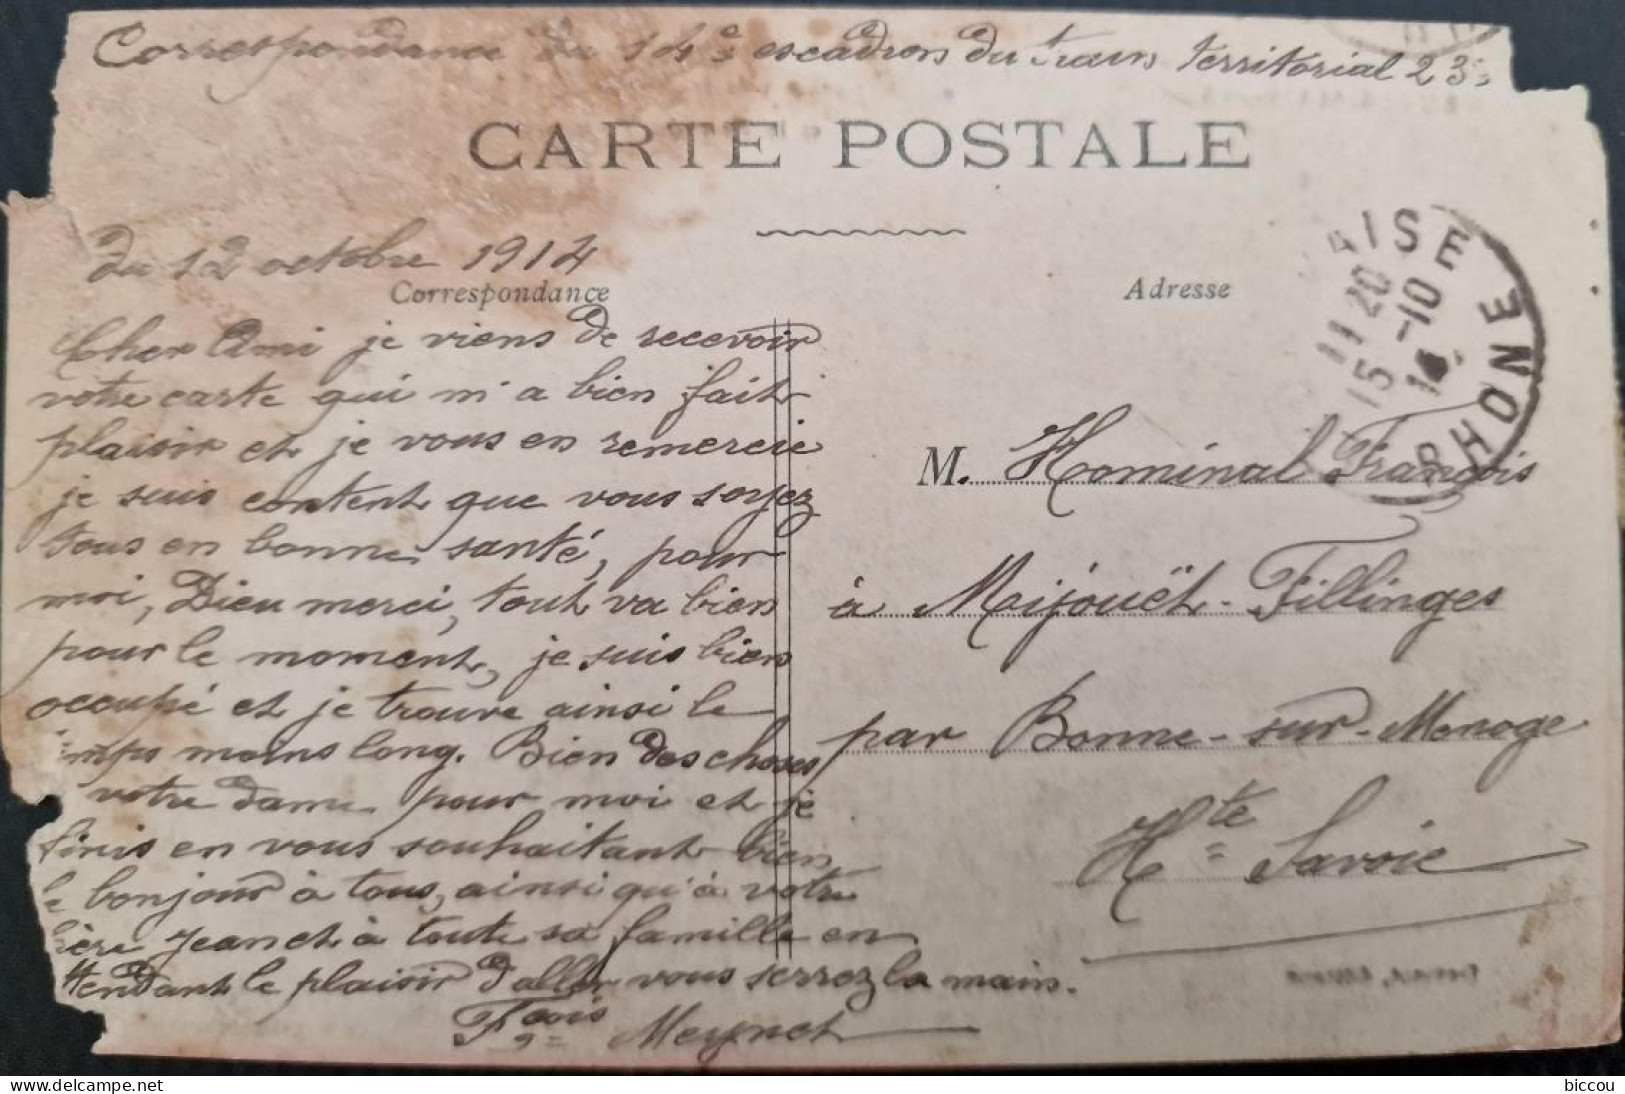 Correspondance du 14e escadron du train territorial 23e
CARTE POSTALE
du 12 octobre 1914
Correspondance
Adresse
AISE
RHONE
11 20
15 -10
14
Cher Ami je viens de recevoir
votre carte qui m'a bien fait
plaisir et je vous en remercie
je suis content que vous soyez
tous en bonne santé, pour
moi, Dieu merci, tout va bien
pour le moment, je suis bien
occupé et je trouve ainsi le
emps moins long. Bien des choses
votre dame pour moi et je
finis en vous souhaitant bien
le bonjour à tous, ainsi qu'à votre
ère Jean et à toute sa famille en
ttendant le plaisir d'aller vous serrez la main.
Fçois Meynet
M. Hominal François
à Mijouët - Fillinges
par Bonne-sur-Menoge
Hte Savoie
biccou